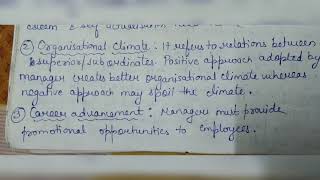 esteem & self actualisation need
② Organisational climate : It refers to relations between
superior/subordinates. Positive approach adopted by
manager creates better organisational climate whereas
negative approach may spoil the climate.
③ Career advancement : Managers must provide
promotional opportunities to employees.